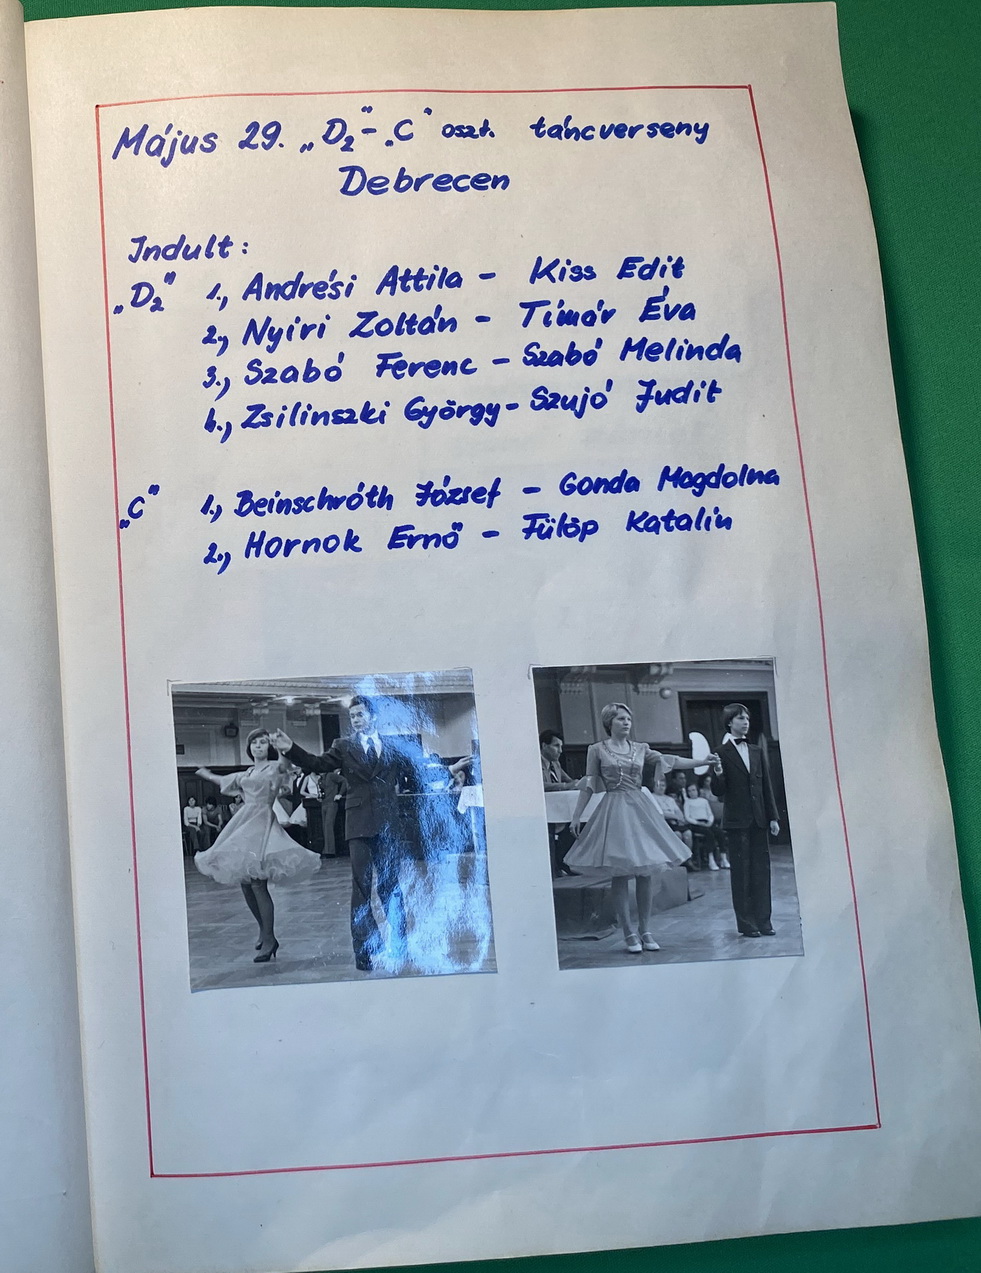 Május 29. „D₂"-„C" oszt. táncverseny
Debrecen
Indult:
„D₂" 1., Andrési Attila - Kiss Edit
2., Nyíri Zoltán - Tímár Éva
3., Szabó Ferenc - Szabó Melinda
4., Zsilinszki György - Szujó Judit
„C" 1., Beinschróth József - Gonda Magdolna
2., Hornok Ernő - Fülöp Katalin